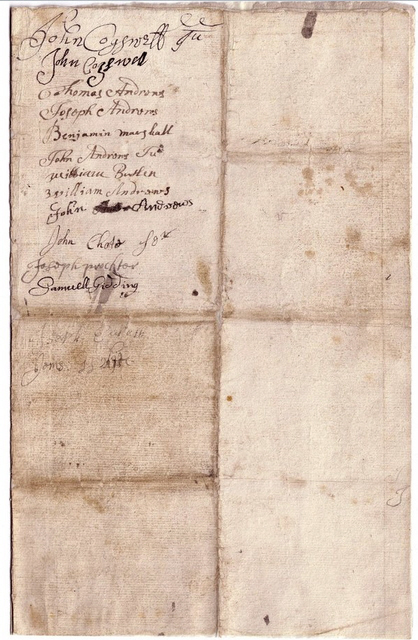 John Cogswell Ju
John Cogswel
Thomas Andrews
Joseph Andrews
Benjamin marshall
John Andrews Ju
william Butler
William Andrews
John Andrews
John Chote Ser
Joseph prockter
Samuell Gidding